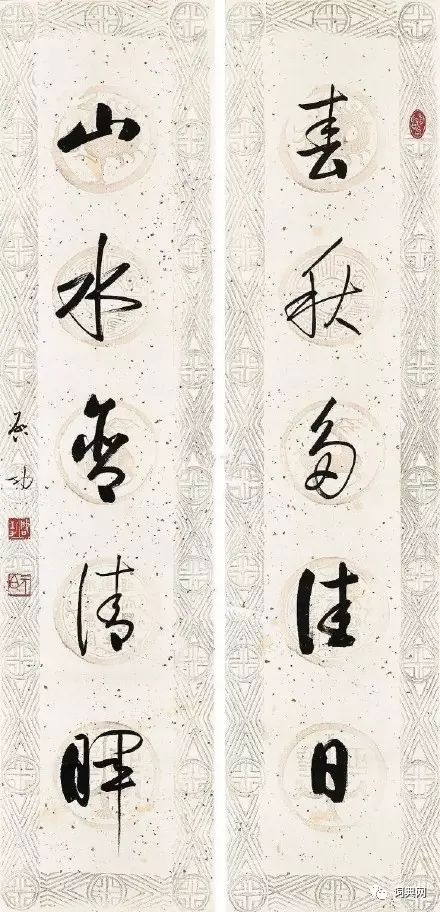 春秋多佳日
山水含清暉
启功
词典网